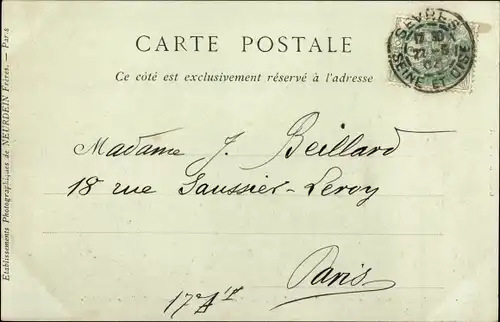 CARTE POSTALE
Ce côté est exclusivement réservé à l'adresse
SÈVRES
SEINE ET OISE
Madame J. Beillard
18 rue Saussier-Leroy
Paris
Etablissements Photographiques de NEURDEIN Frères. — Paris